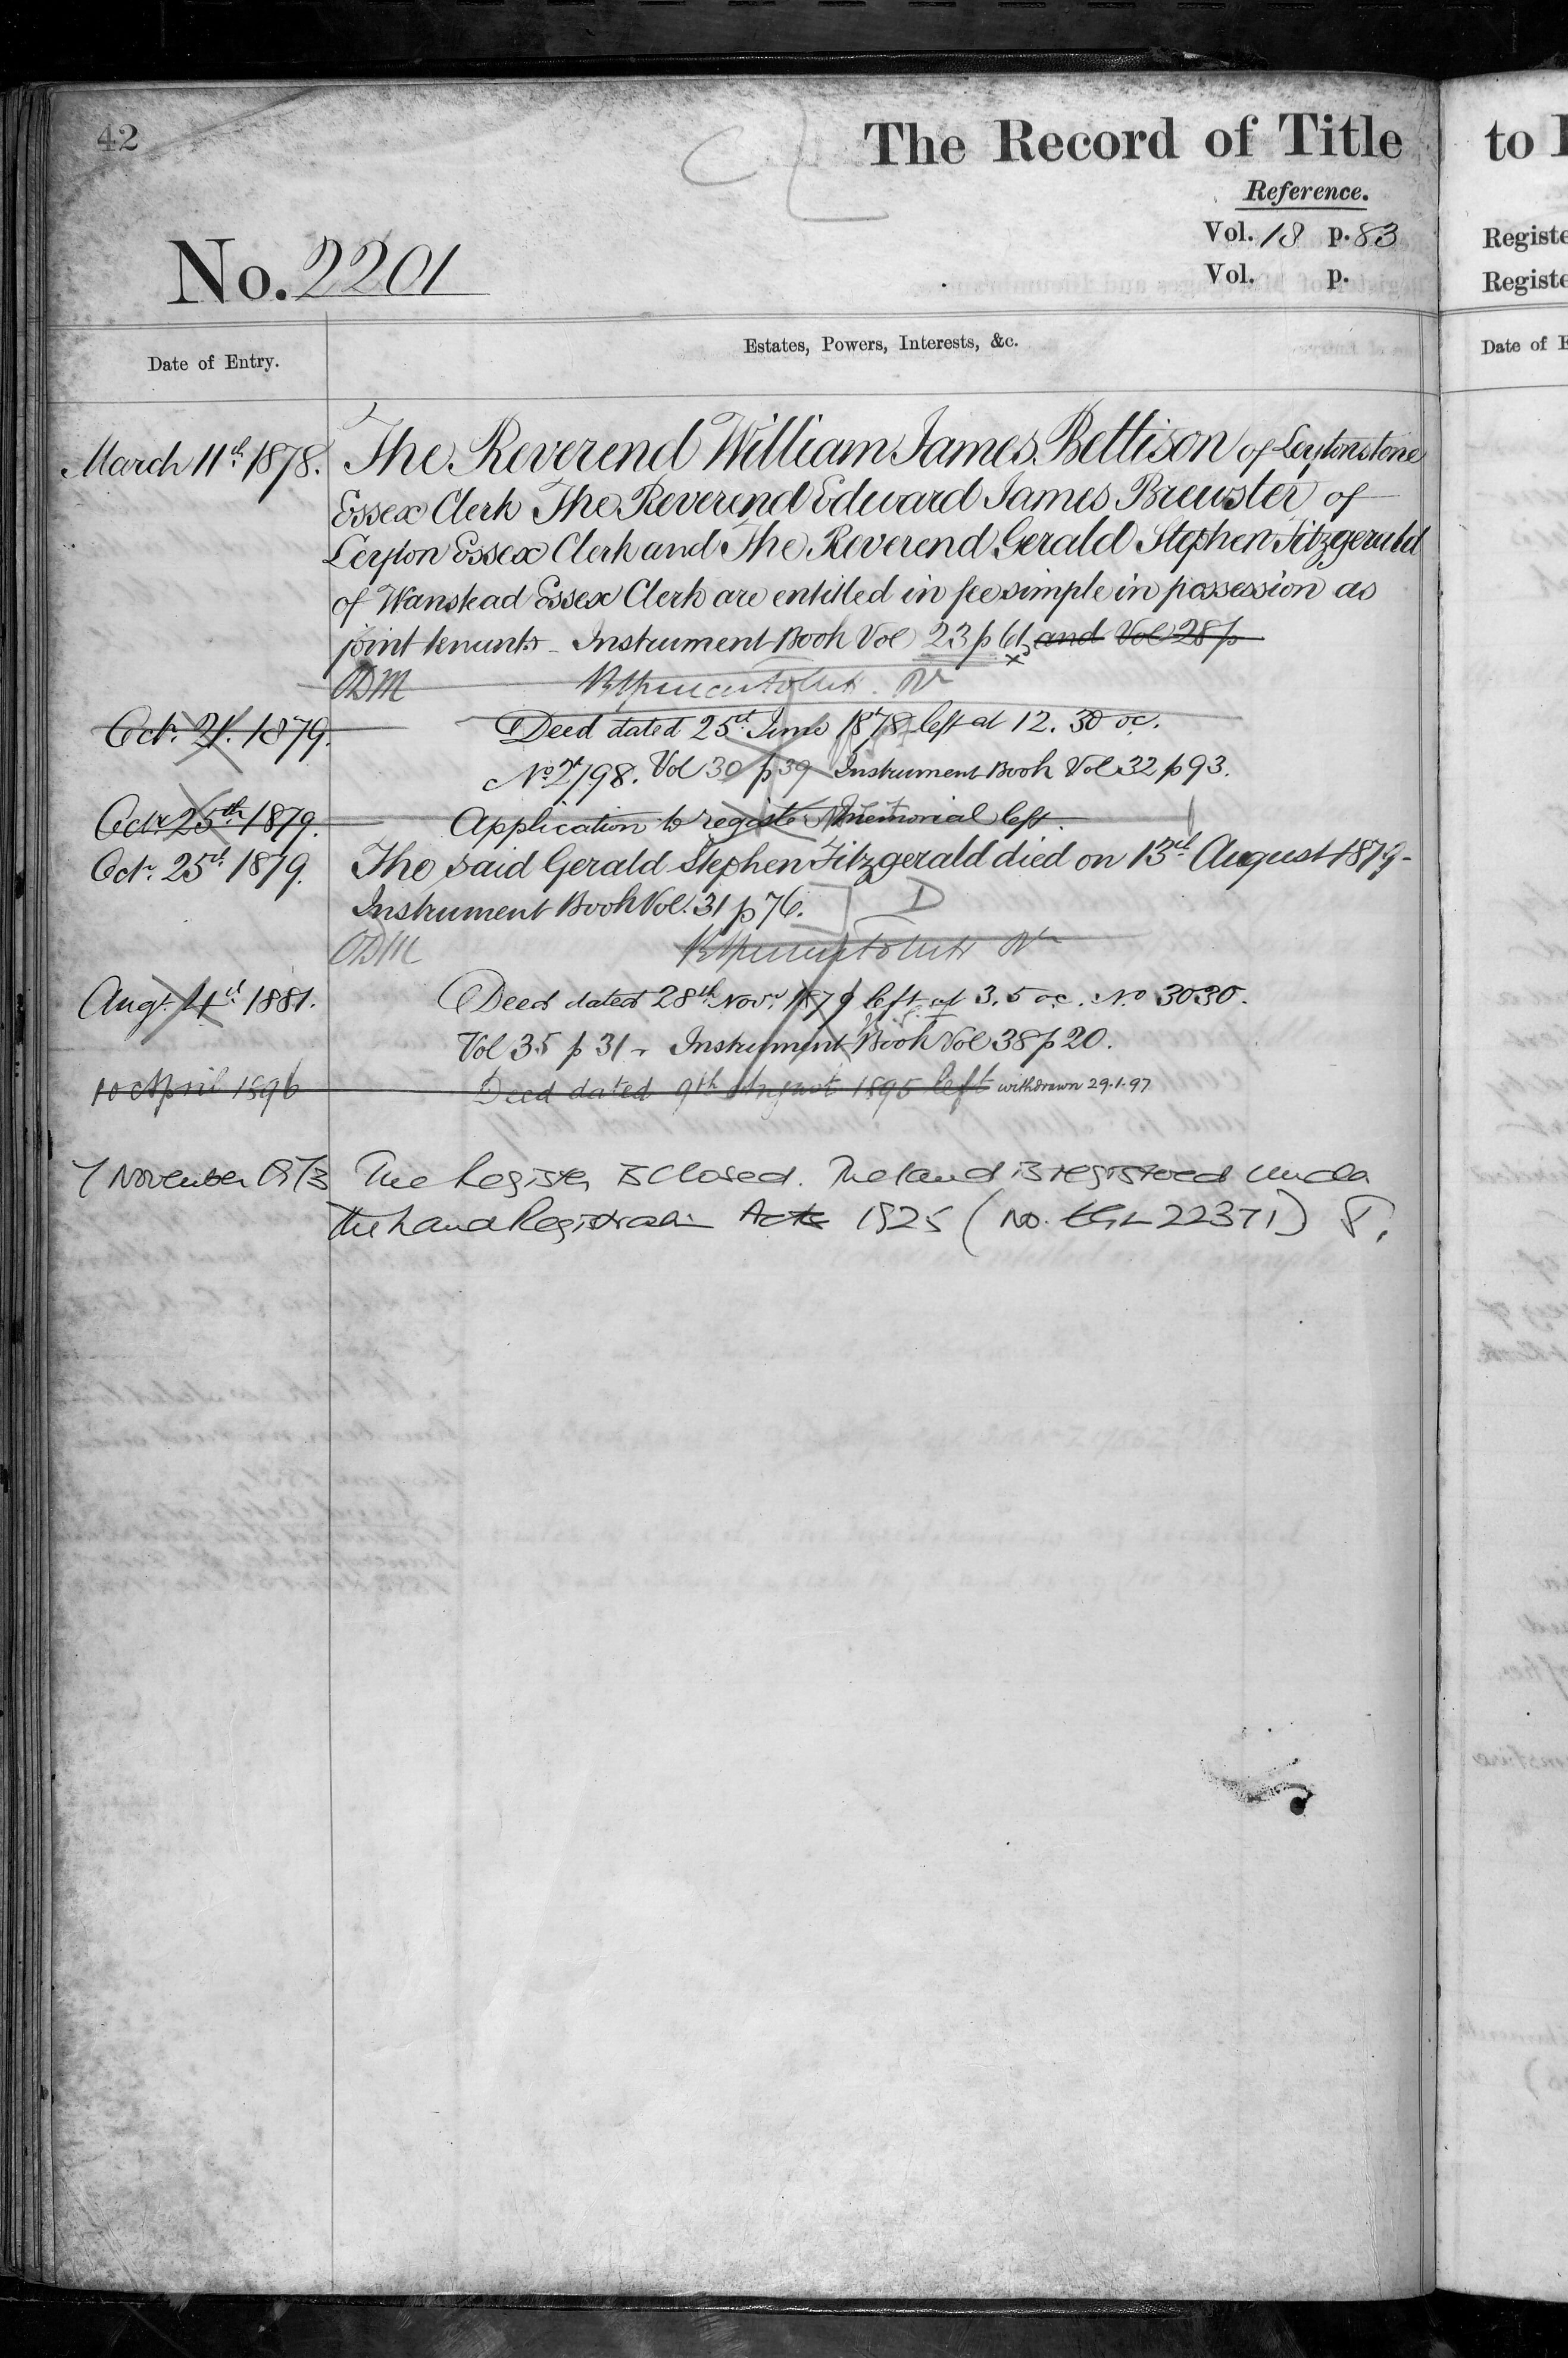 42
The Record of Title
Reference.
Vol. 18 p. 83
Vol. p.
No. 2201
Date of Entry.
Estates, Powers, Interests, &c.
March 11th 1878. The Reverend William James Bettison of Leytonstone
Essex Clerk The Reverend Edward James Brewster of
Leyton Essex Clerk and The Reverend Gerald Stephen Fitzgerald
of Wanstead Essex Clerk are entitled in fee simple in possession as
joint tenants - Instrument Book Vol 23 p 61 and Vol 28 p
ODM
Octr. 21. 1879. Deed dated 25th June 1878 left at 12.30 oc.
No. 2798. Vol 30 p 39 Instrument Book Vol 32 p 93.
Octr 25th 1879. Application to register memorial left.
Octr. 25th 1879. The said Gerald Stephen Fitzgerald died on 13th August 1879-
Instrument Book Vol. 31 p 76. D
ODM
Augt. 4th 1881. Deed dated 28th Novr. 1879 left at 3.5 oc. No 3030.
Vol 35 p 31 - Instrument Book Vol 38 p 20.
10 April 1896 Deed dated 9th August 1895 left withdrawn 29.1.97
7 November 1973 The Register is closed. The land is registered under
the Land Registration Acts 1925 (No. EGL 22371)
to
Registe
Registe
Date of E